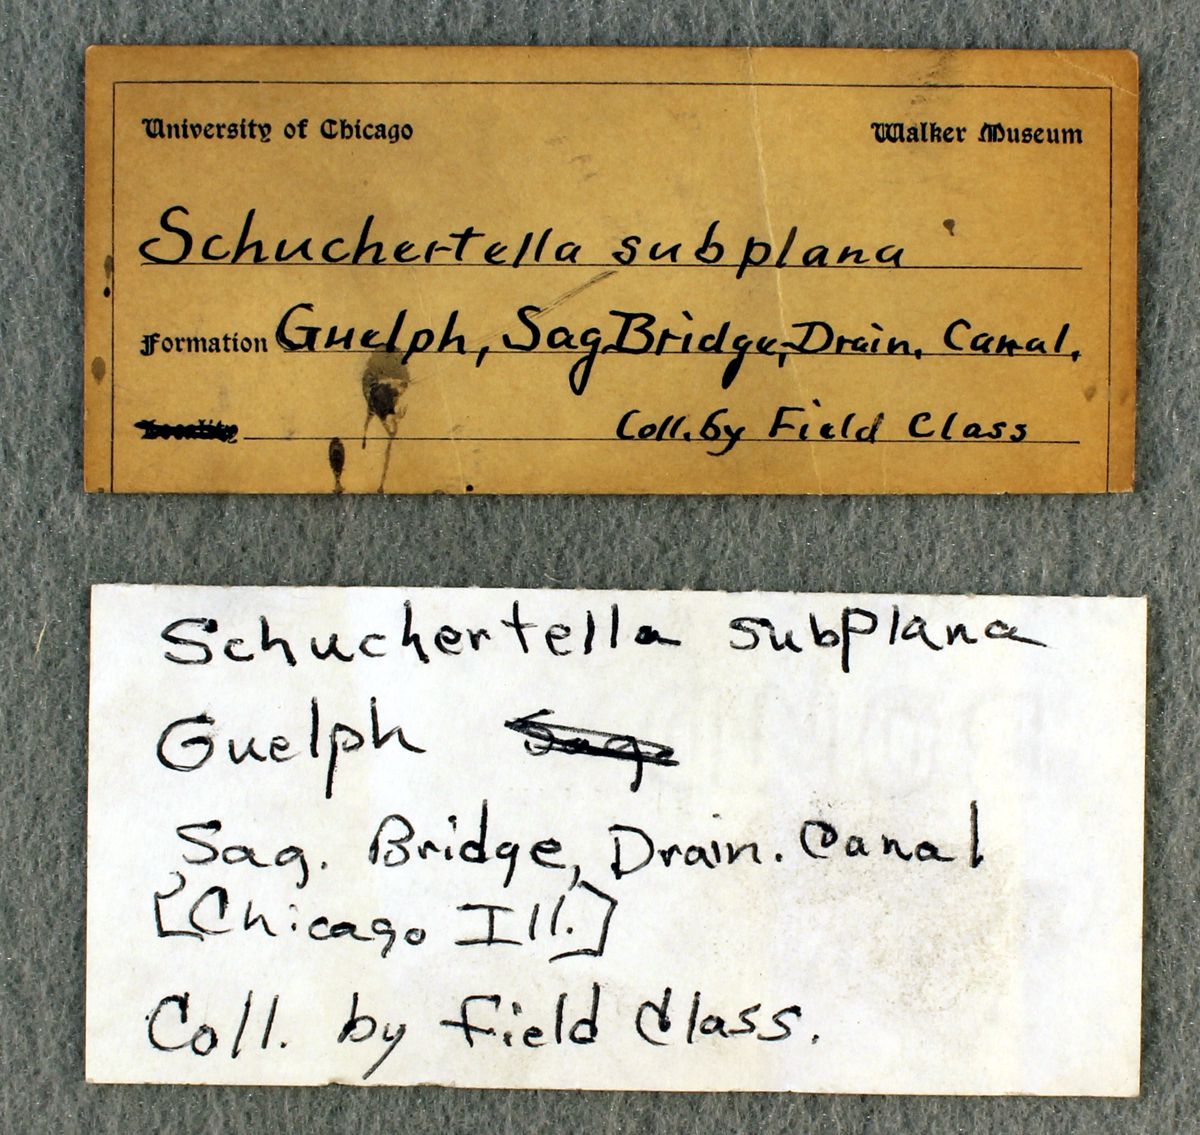 University of Chicago Walker Museum
Schuchertella subplana
Formation Guelph, Sag Bridge, Drain. Canal.
Locality Coll. by Field Class
Schuchertella subplana
Guelph Sag
Sag. Bridge, Drain. Canal
[Chicago Ill.]
Coll. by Field Class.